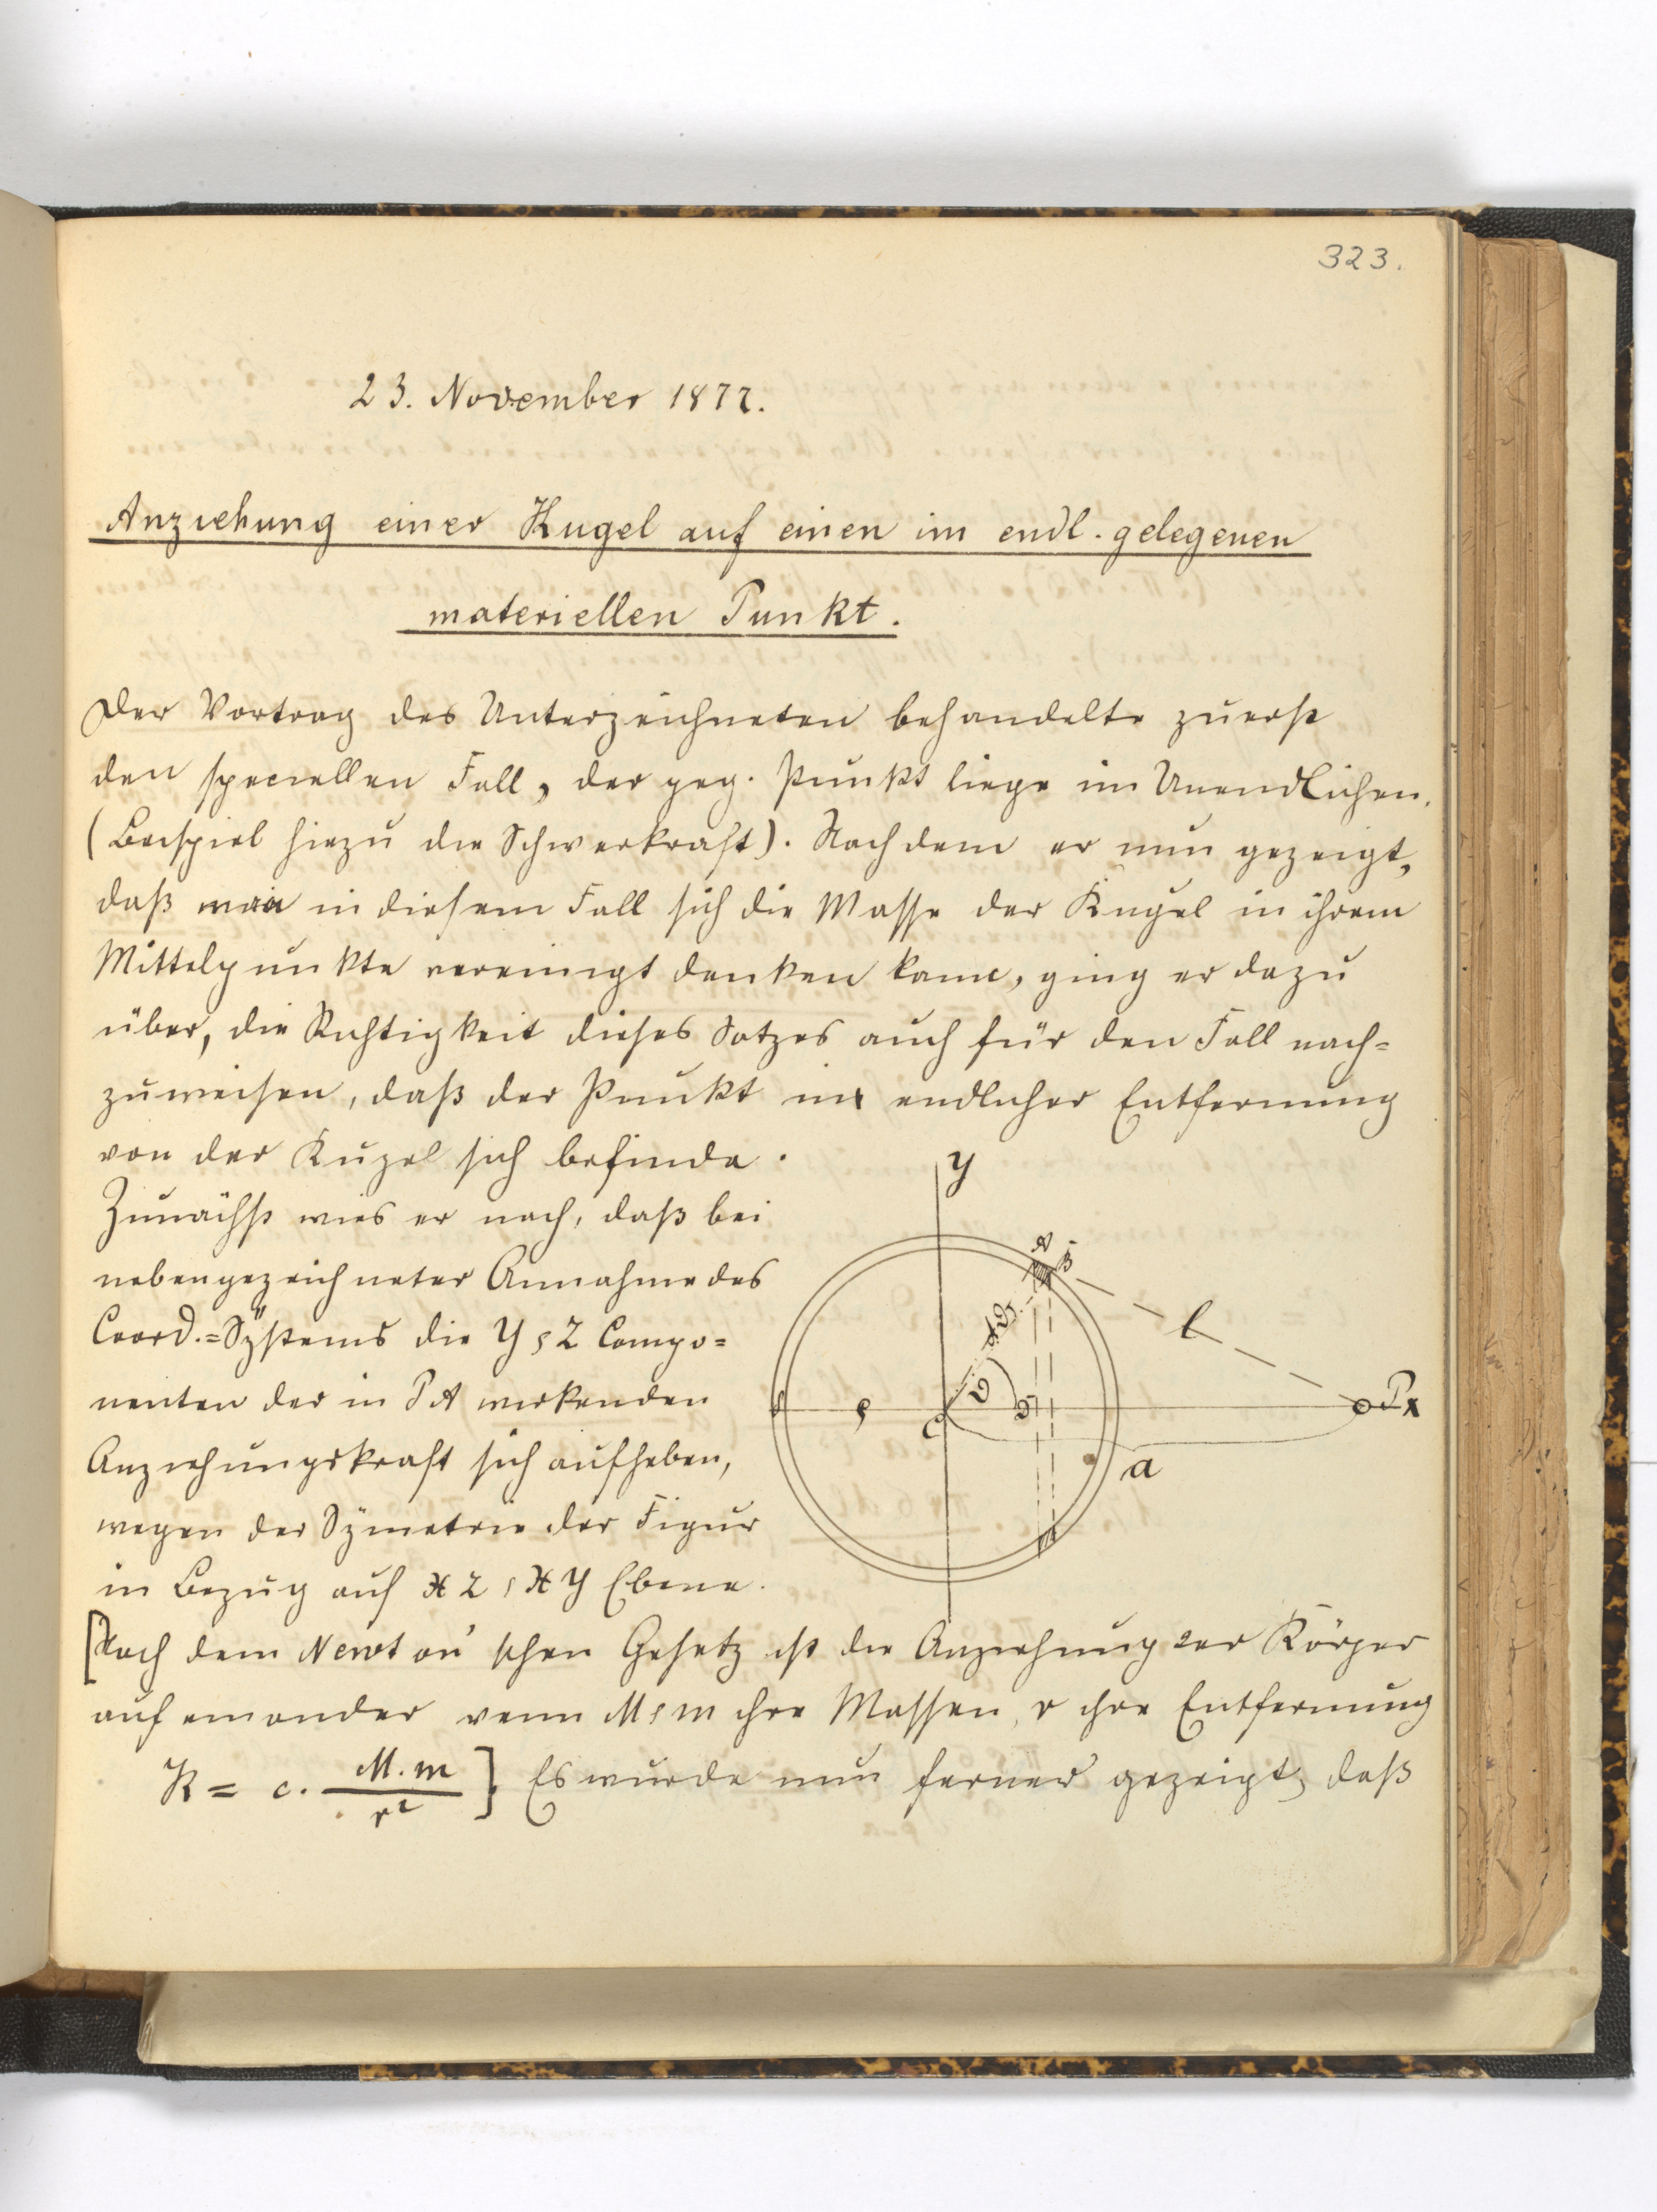 323.
23. November 1877.
Anziehung einer Kugel auf einen im endl. gelegenen
materiellen Punkt.
Der Vortrag des Unterzeichneten behandelte zuerst
den speciellen Fall, der geg. Punkt liege im Unendlichen.
(Beispiel hiezu die Schwerkraft). Nachdem er nun gezeigt,
daß man in diesem Fall sich die Masse der Kugel in ihrem
Mittelpunkte vereinigt denken kann, ging er dazu
über, die Richtigkeit dieses Satzes auch für den Fall nach=
zuweisen, daß der Punkt in endlicher Entfernung
von der Kugel sich befinde.
Zunächst wies er nach, daß bei
nebengezeichneter Annahme des
Coord.=Systems die Y & Z Compo=
nenten der in PA wirkenden
Anziehungskraft sich aufheben,
wegen der Symetrie der Figur
in Bezug auf XZ & XY Ebene.
y
A
B
l
P x
C
a
[Nach dem Newton'schen Gesetz ist die Anziehung der Körper
auf einander wenn M & m ihre Massen, r ihre Entfernung
K = c. M.m / r²] Es wurde nun ferner gezeigt, daß